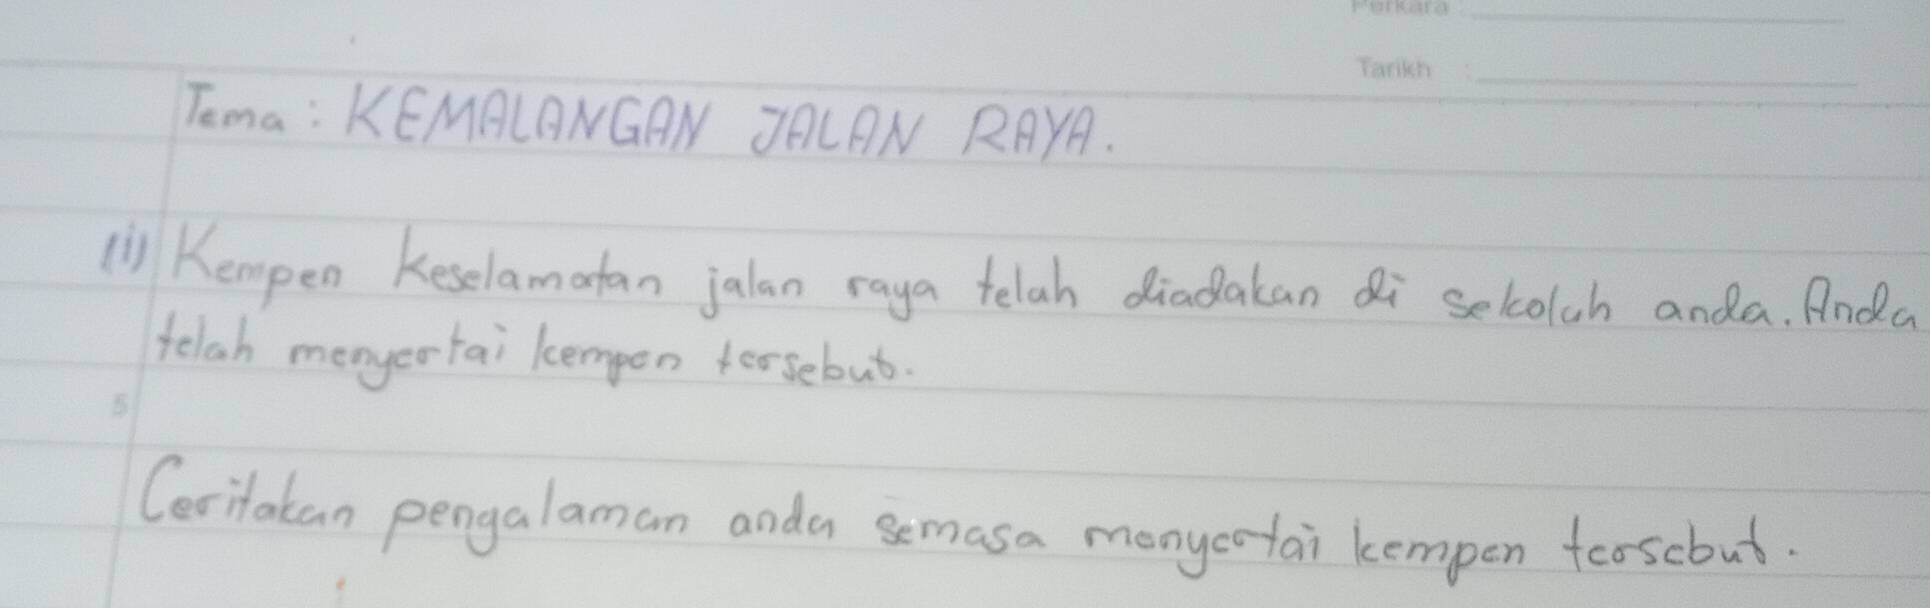 Perkara
Tarikh
Tema: KEMALANGAN JALAN RAYA.
(ii) Kempen Keselamatan jalan raya telah diadakan di sekolah anda. Anda
telah menyertai kempen tersebut.
5
Ceritakan pengalaman anda semasa menyertai kempen tersebut.